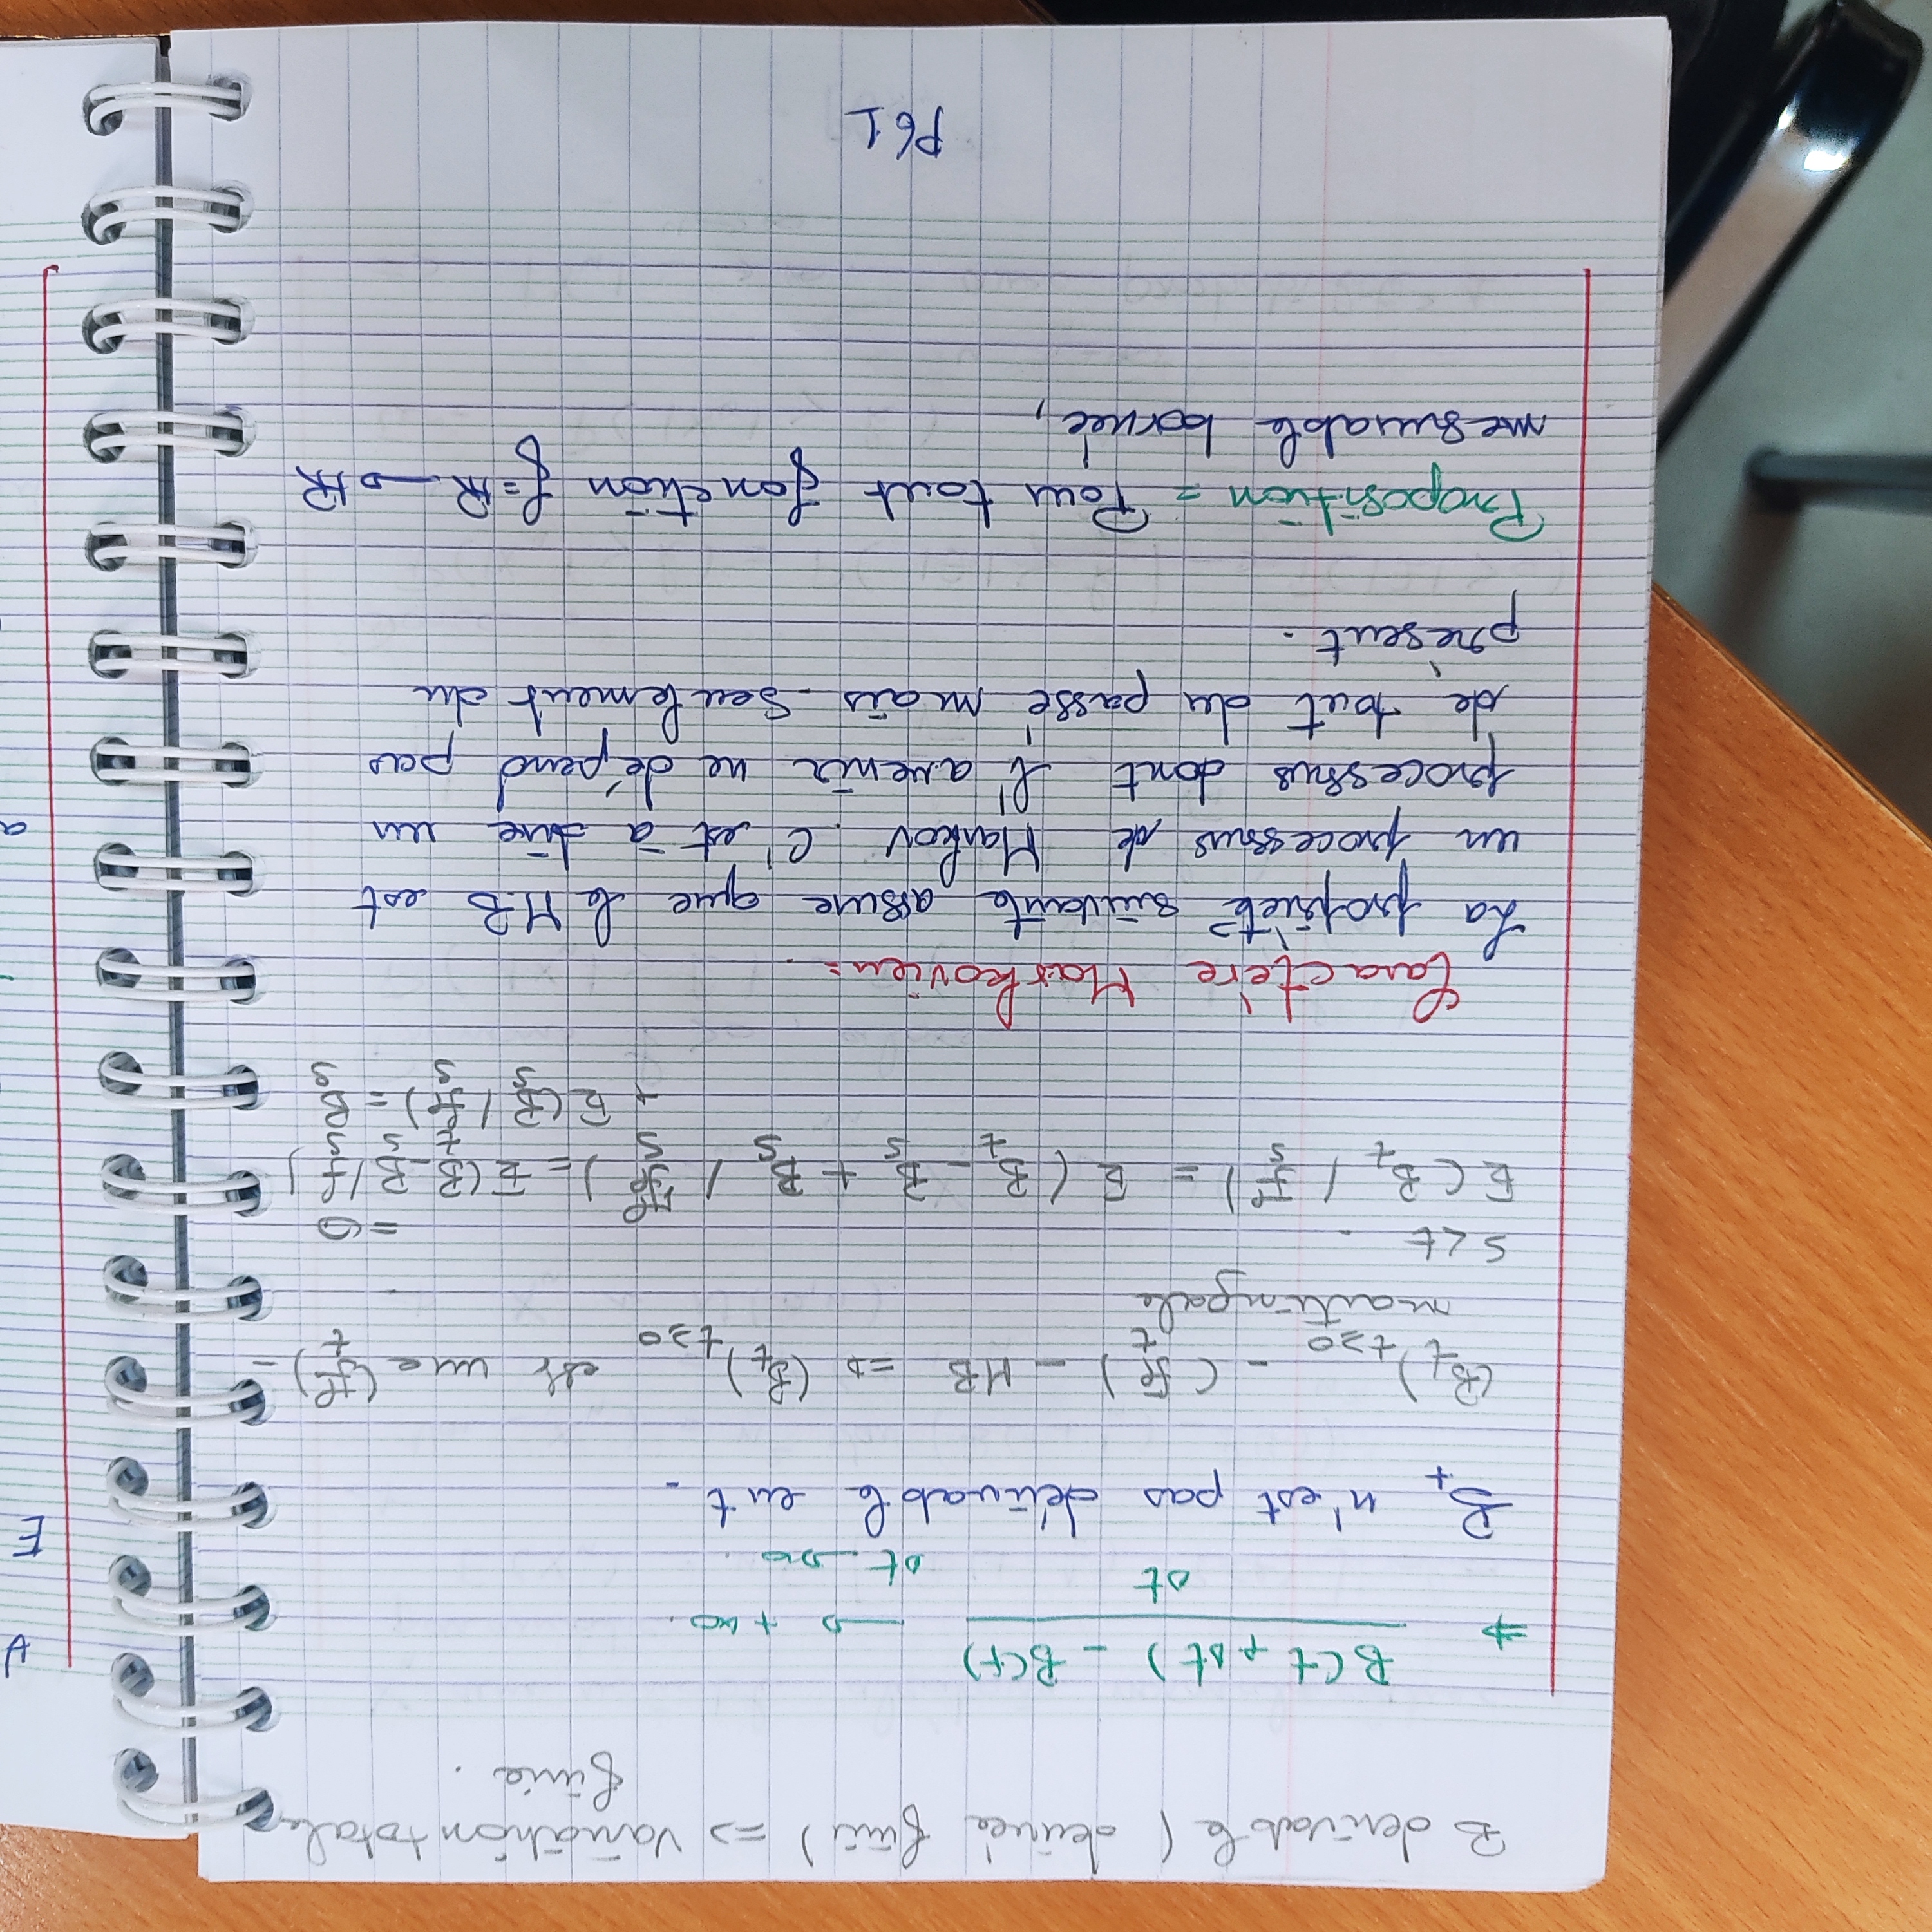 B derivable ( derivée finie ) => Variation totale
finie .
=> B(t + Δt) - B(t) / Δt → +∞.
Δt → 0.
B_t n'est pas dérivable en t.
(B_t)_{t≥0} - (F_t) - MB => (B_t)_{t≥0} est une (F_t) -
martingale
s < t .
= 0
E ( B_t / F_s ) = E ( B_t - B_s + B_s / F_s ) = E ( B_t - B_s / F_s )
+ E ( B_s / F_s ) = B_s
Caractère Markovien =.
La propriété suivante assure que le M.B est
un processus de Markov. C'est à dire un
processus dont l'avenir ne dépend pas
de tout du passé mais seulement du
présent.
Proposition = Pour tout fonction f = ℝ → ℝ
mesurable bornée,
P61
∀
E
a